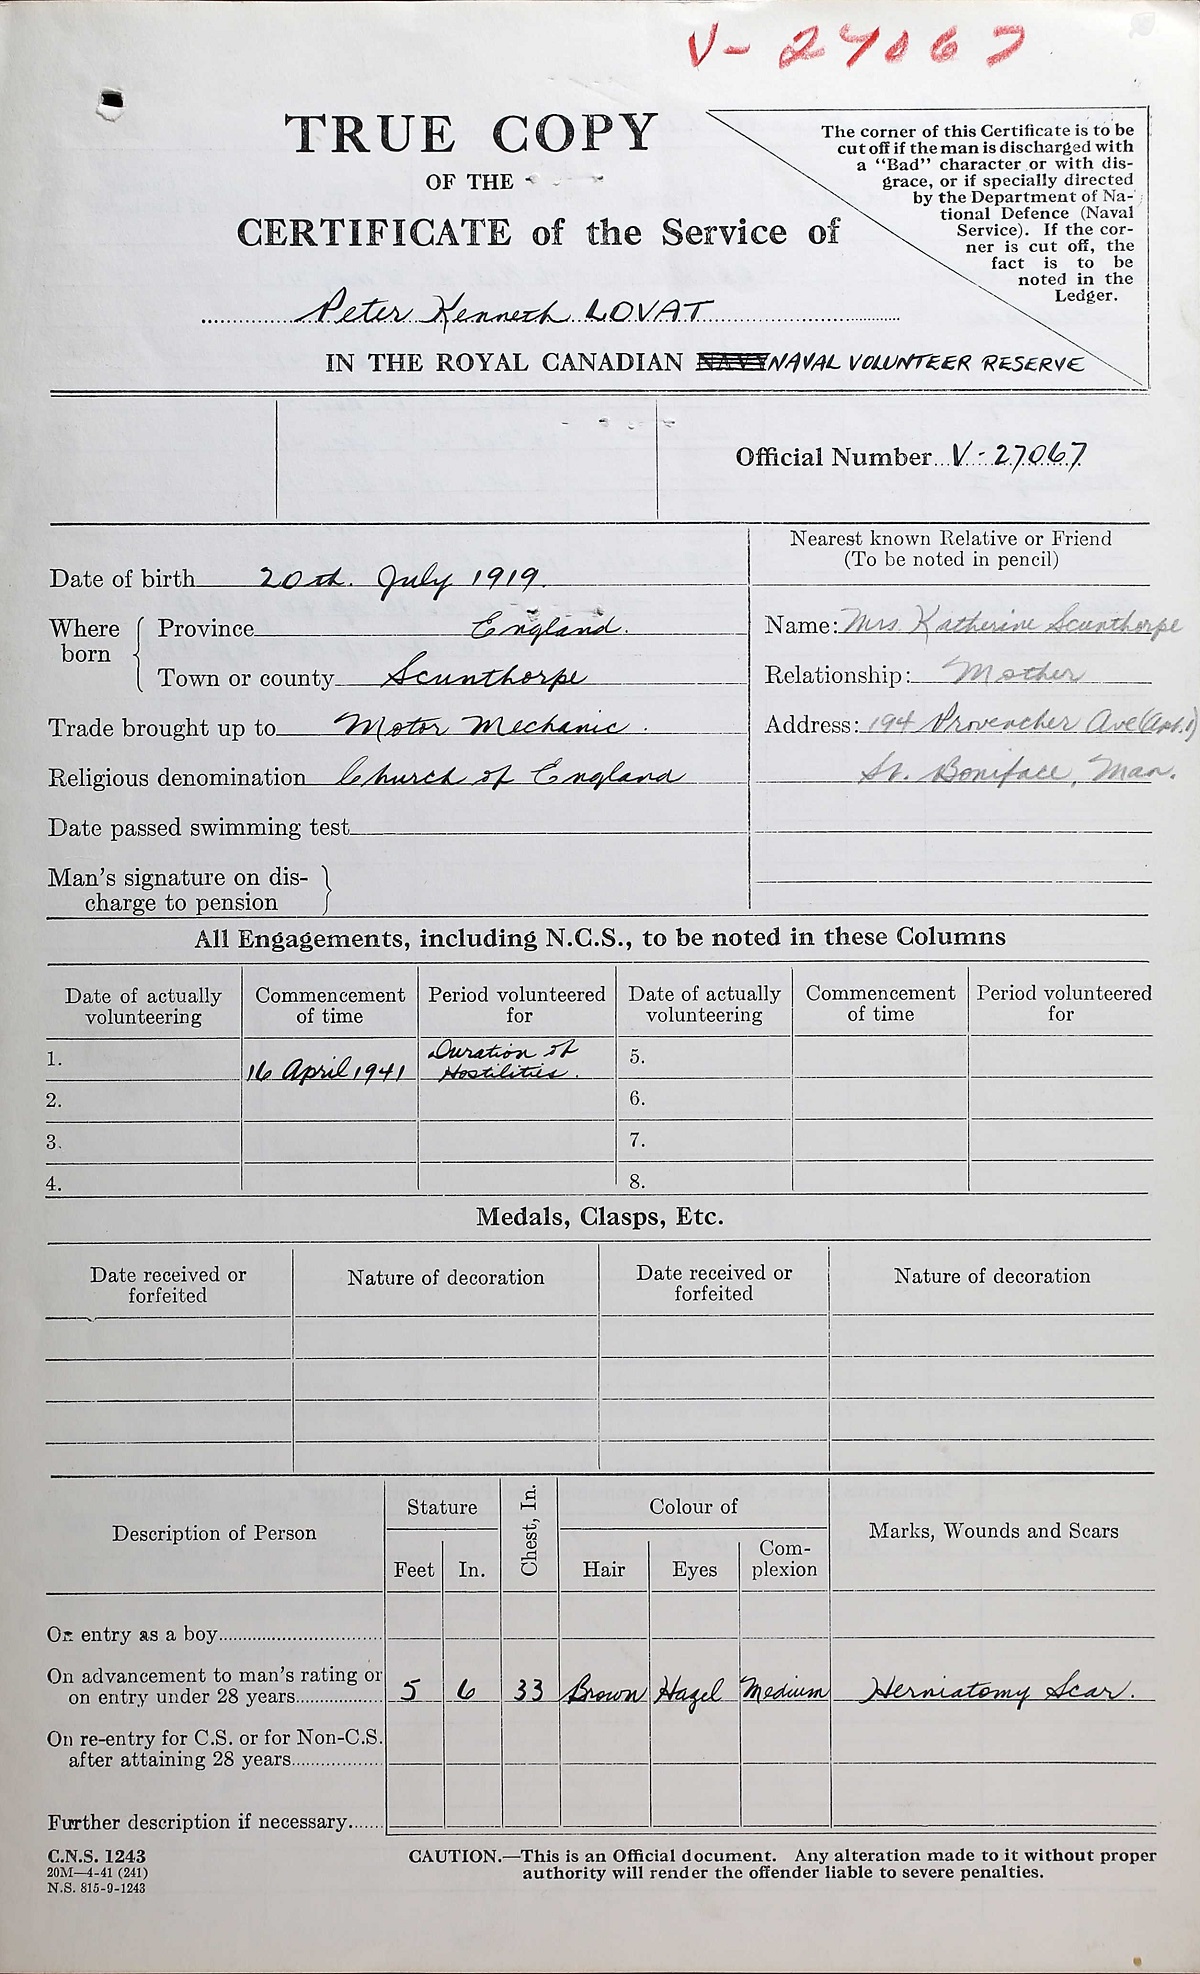 V-27067
TRUE COPY
OF THE
CERTIFICATE of the Service of
Peter Kenneth LOVAT
IN THE ROYAL CANADIAN NAVY NAVAL VOLUNTEER RESERVE
The corner of this Certificate is to be
cut off if the man is discharged with
a "Bad" character or with dis-
grace, or if specially directed
by the Department of Na-
tional Defence (Naval
Service). If the cor-
ner is cut off, the
fact is to be
noted in the
Ledger.
Official Number V-27067
Date of birth 20th. July 1919.
Where born
Province England.
Town or county Scunthorpe
Trade brought up to Motor Mechanic.
Religious denomination Church of England
Date passed swimming test
Man's signature on dis-
charge to pension
Nearest known Relative or Friend
(To be noted in pencil)
Name: Mrs. Katherine Scunthorpe
Relationship: Mother
Address: 194 Provencher Ave (Apt. 1)
St. Boniface, Man.
All Engagements, including N.C.S., to be noted in these Columns
Date of actually volunteering
Commencement of time
Period volunteered for
Date of actually volunteering
Commencement of time
Period volunteered for
1. 16 April 1941 Duration of Hostilities. 5.
2. 6.
3. 7.
4. 8.
Medals, Clasps, Etc.
Date received or forfeited
Nature of decoration
Date received or forfeited
Nature of decoration
Description of Person
Stature
Feet In.
Chest, In.
Colour of
Hair Eyes Com-
plexion
Marks, Wounds and Scars
On entry as a boy
On advancement to man's rating or
on entry under 28 years 5 6 33 Brown Hazel Medium Herniatomy Scar.
On re-entry for C.S. or for Non-C.S.
after attaining 28 years
Further description if necessary
C.N.S. 1243
20M—4-41 (241)
N.S. 815-9-1243
CAUTION.—This is an Official document. Any alteration made to it without proper
authority will render the offender liable to severe penalties.